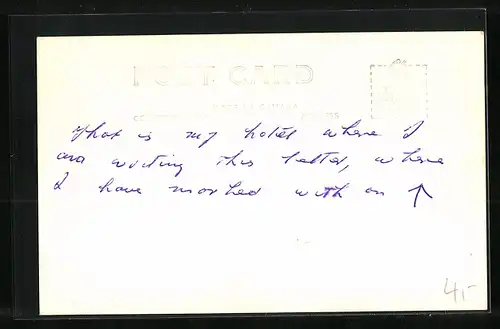 POST CARD
MADE IN CANADA
That is my hotel where I
am writing this letter, where
I have marked with an ↑
4,-